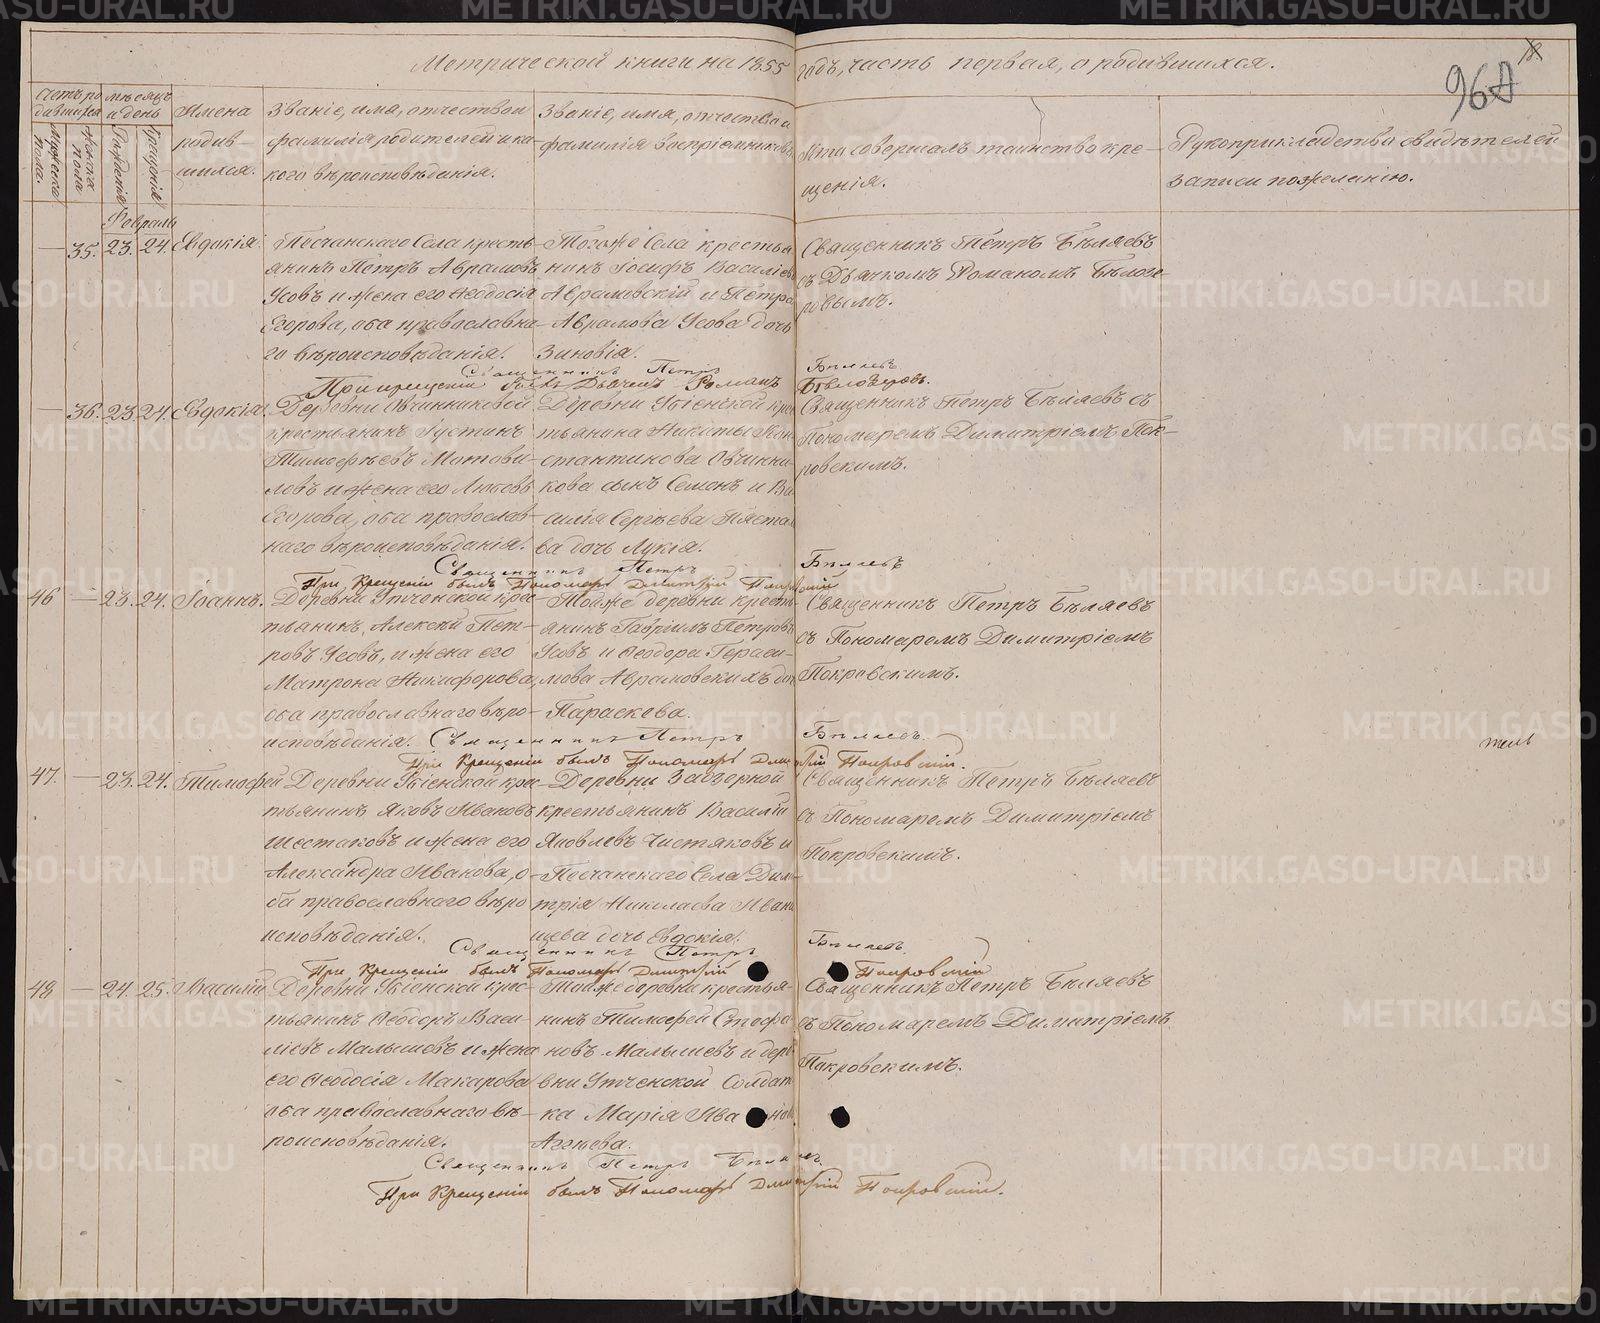 Метрической книги на 1855 годъ, часть первая, о родившихся.
968
Счетъ родившихся
Мужеска пола.
Женска пола
Мѣсяцъ и день
Рожденія
Крещенія
Имена родившихся.
Званіе, имя, отчество и
фамилія родителей и ка-
кого вѣроисповѣданія.
Званіе, имя, отчество и
фамилія воспріемниковъ
Кто совершалъ таинство кре-
щенія.
Рукоприкладство свидѣтелей
записи по желанію.
Февраль
— 35. 23. 24. Евдокія.
Песчанскаго Села кресть-
янинъ Петръ Аврамовъ
Усовъ и жена его Ѳеодосія
Егорова, оба православна-
го вѣроисповѣданія.
Тогоже Села крестья
нинъ Іосифъ Василіевъ
Аврамовскій и Петра
Аврамова Усова дочь
Зиновія.
Священникъ Петръ Бѣляевъ
съ Дьячкомъ Романомъ Бѣлозе-
ровымъ.
Священникъ Петръ Бѣляевъ
При крещеніи былъ Дьячекъ Романъ Бѣлозеровъ.
— 36. 23. 24. Евдокія.
Деревни Овчинниковой
крестьянинъ Густинъ
Тимофѣевъ Матови-
ловъ и жена его Любовь
Егорова, оба православ-
наго вѣроисповѣданія.
Деревни Убіенской крес
тьянина Никиты Кон
стантинова Овчинни-
кова сынъ Семенъ и Ва
силія Сергѣева
ва дочь Лукія.
Священникъ Петръ Бѣляевъ съ
Пономаремъ Димитріемъ Пок-
ровскимъ.
Священникъ Петръ Бѣляевъ
При Крещеніи былъ Пономарь Димитрій Покровскій
46 — 23. 24. Іоаннъ.
Деревни Утченской крес-
тьянинъ Алексѣй Пет-
ровъ Усовъ, и жена его
Матрона Никифорова,
оба православнаго вѣро-
исповѣданія.
Тойже деревни кресть-
янинъ Гавріилъ Петровъ
Усовъ и Ѳеодора Гераси-
мова Аврамовскихъ доч
Параскева.
Священникъ Петръ Бѣляевъ
съ Пономаремъ Димитріемъ
Покровскимъ.
Священникъ Петръ Бѣляевъ.
При Крещеніи былъ Пономарь Димитрій Покровскій.
47. — 23. 24. Тимофей
Деревни Убіенской крес-
тьянинъ Яковъ Ивановъ
Шестаковъ и жена его
Александра Иванова, о-
ба православнаго вѣро
исповѣданія.
Деревни Заозерной
крестьянинъ Василій
Яковлевъ Чистяковъ и
Песчанскаго Села Дим-
трія Николаева Ивани
щева дочь Евдокія.
Священникъ Петръ Бѣляевъ
съ Пономаремъ Димитріемъ
Покровскимъ.
Священникъ Петръ Бѣляевъ
При Крещеніи былъ Пономарь Димитрій Покровскій
48 — 24. 25. Василій
Деревни Убіенской крес-
тьянинъ Ѳеодоръ Васи-
ліевъ Малышевъ и жена
его Ѳеодосія Макарова
оба православнаго вѣ-
роисповѣданія.
Тойже деревни крестья-
нинъ Тимофей Стефа-
новъ Малышевъ и дере
вни Утченской Солдат
ка Марія Иванов
Агѣева.
Священникъ Петръ Бѣляевъ
съ Пономаремъ Димитріемъ
Покровскимъ.
Священникъ Петръ Бѣляевъ.
При Крещеніи былъ Пономарь Димитрій Покровскій.
METRIKI.GASO-URAL.RU